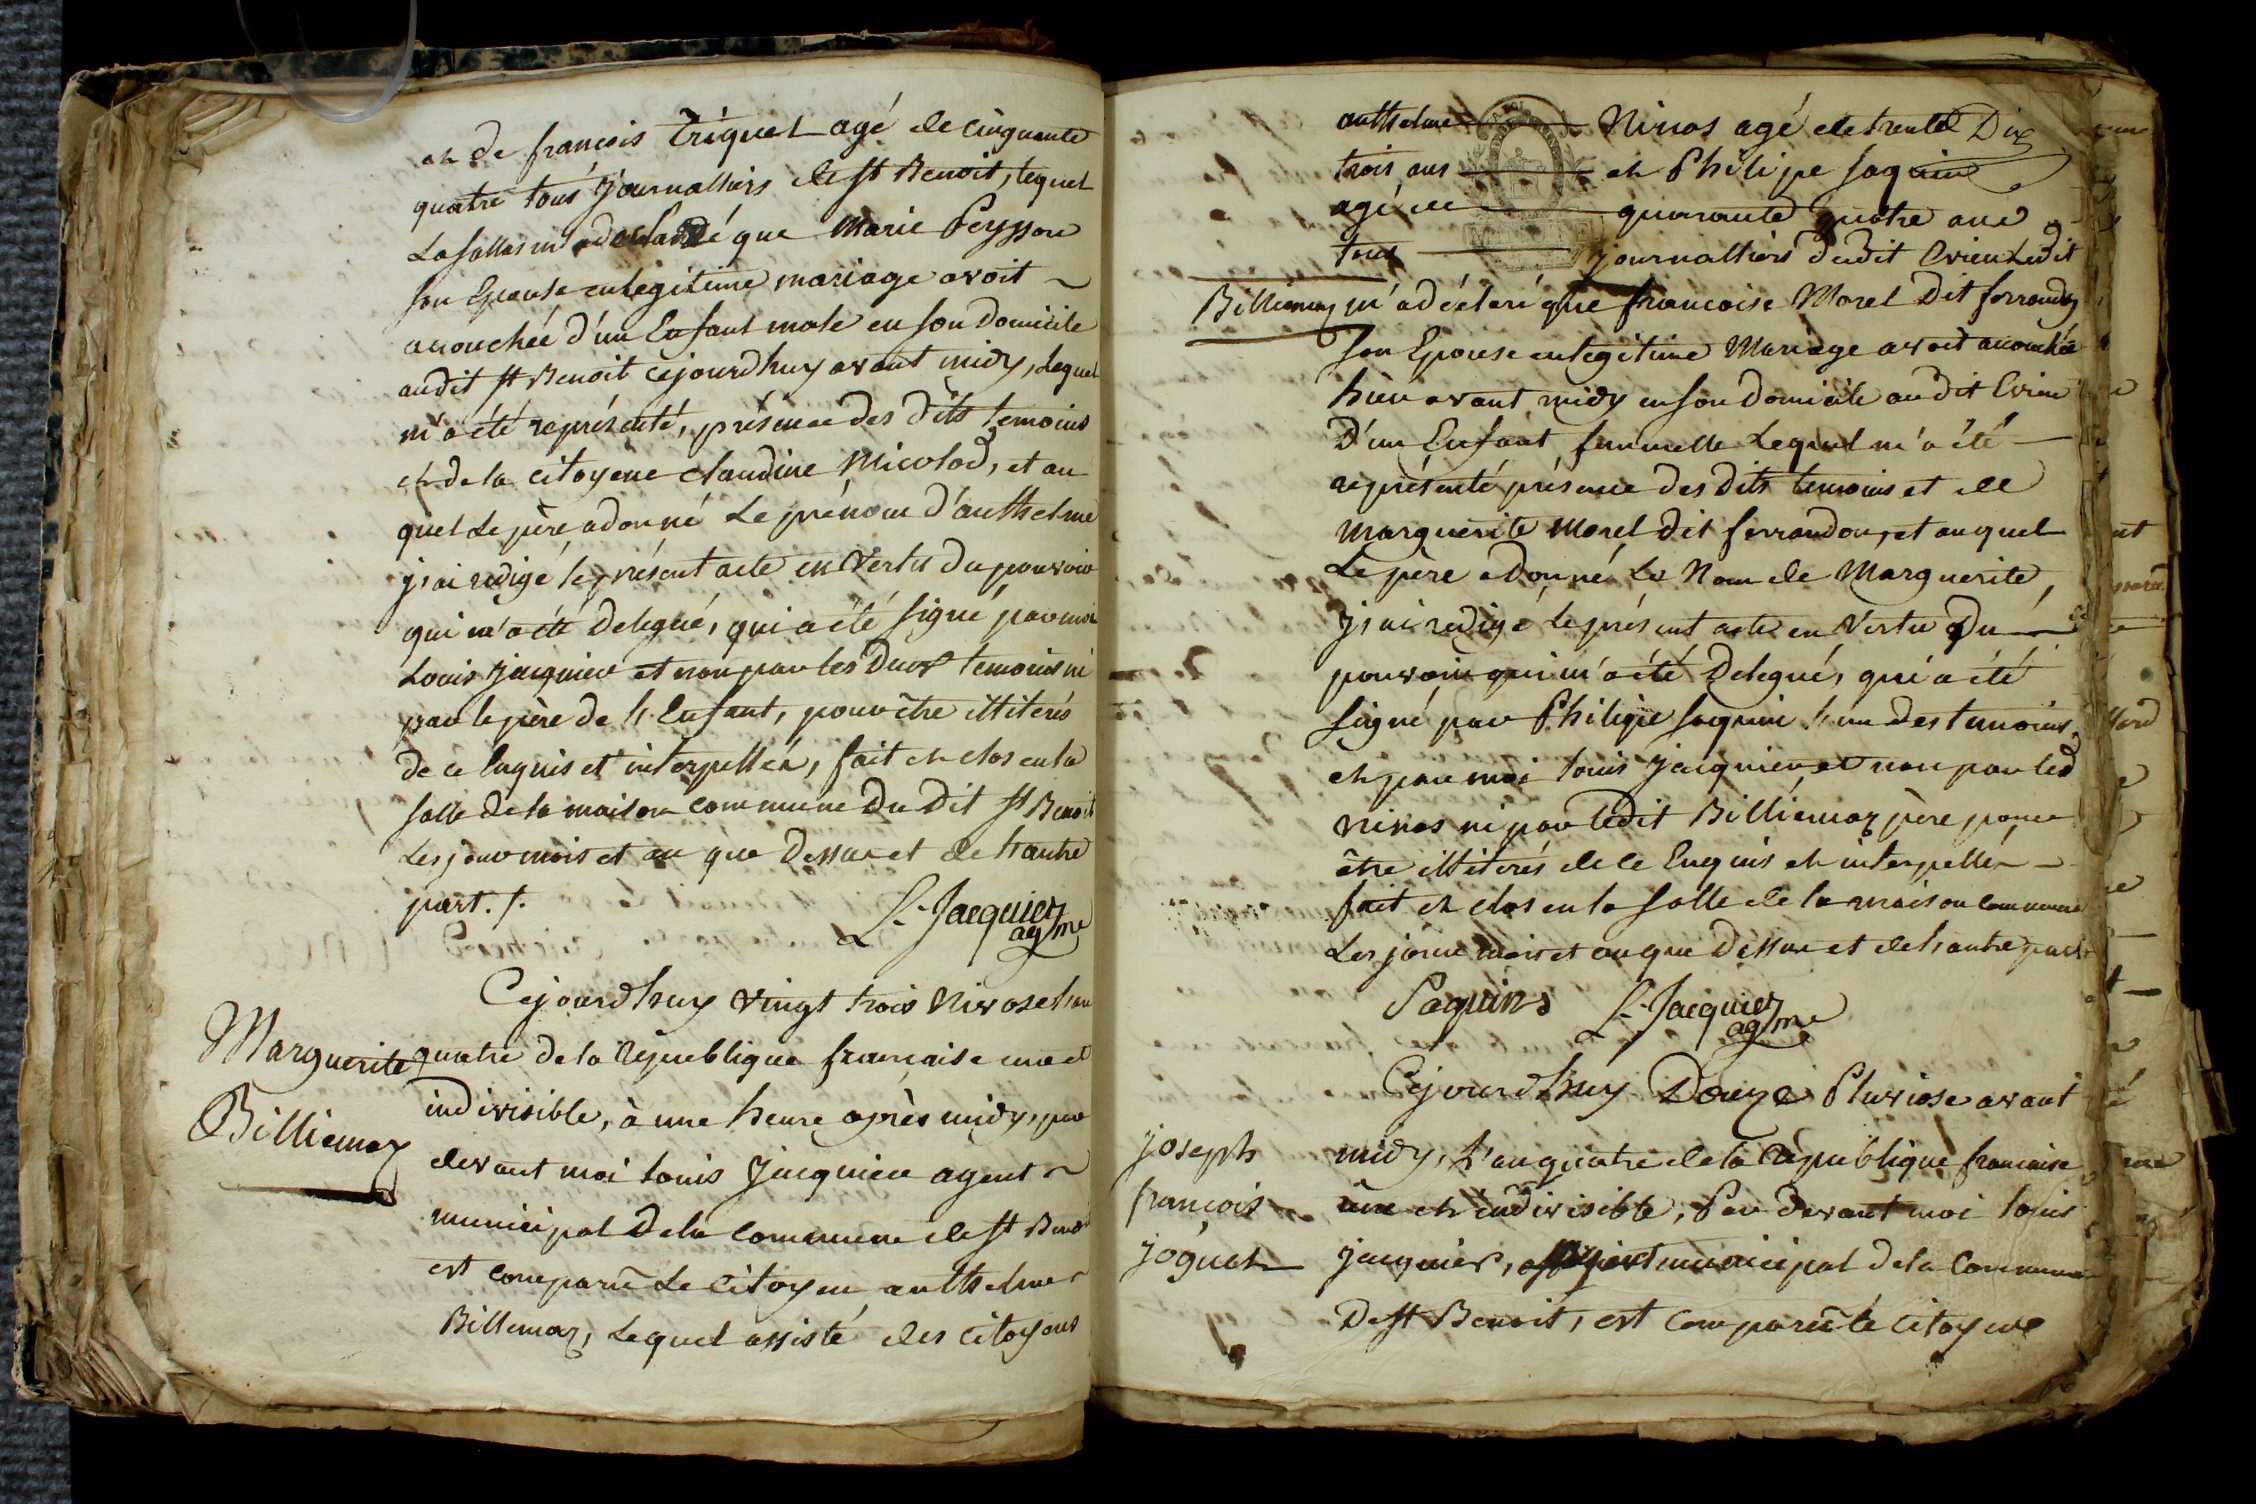 et de françois Triquet agé de cinquante
quatre tous journalliers de st Benoit, lequel
Lasalla m'a déclaré que Marie Peysson
son Epouse en legitime mariage avoit
accouchée d'un Enfant male en son Domicile
audit st Benoit cejourd'huy avant midy, Lequel
m'a été représenté, présence des dits temoins
et de la citoyene claudine Micolod, et au
quel Le père a donné Le prénom d'anthelme
j'ai redigé le présent acte en vertu du pouvoir
qui m'a été Delegué, qui a été signé par moi
Louis jacquier et non par les Deux temoins ni
par le père de l'Enfant, pour être illiterés
de ce Enquis et interpellés, fait et clos en la
salle de la maison commune Du Dit st Benoit
Les jour mois et an que Dessus et de l'autre
part. /.
L. Jacquier
ag me
Cejourd'huy vingt trois Nivose l'an
Marguerite
Billiemaz
quatre de la République française une et
indivisible, à une heure après midy, par
devant moi Louis Jacquier agent
municipal De la Commune de st Benoit
est comparu Le citoyen anthelme
Billemaz, Lequel assisté des citoyens
anthelme Ninos agé de trente Dix
trois ans et Philipe saquin
agé de quarante quatre ans
tous journalliers dudit Evieu Ledit
Billiemaz m'a déclaré que francoise Morel Dit ferrandoz
son Epouse en legitime Mariage avoit accouchée
hier avant midy en son Domicile au dit Evieu
D'un Enfant femmelle Lequel m'a été
représenté, présence des Dits temoins et de
Marguerite Morel Dit ferrandon, et auquel
Le père a Donné Le Nom de Marguerite,
j'ai redigé le présent acte en Vertu Du
pouvoir qui m'a été Delegué, qui a été
signé par Philipe saquin l'un des temoins,
et par moi Louis jacquier et non par led
ninos ni par ledit Billiemaz père pour
être illiterés de ce Enquis et interpellés
fait et clos en la salle de la maison commune
Les jour mois et an que Dessus et de l'autre part
Saquins
L. Jacquier
ag me
Cejourd'huy Douze Pluviose avant
joseph
françois
joguet
midy, L'an quatre de la République francaise
une et indivisible, Par devant moi Louis
jacquier, agent municipal de la Commune
De st Benoit, est comparu le citoyen